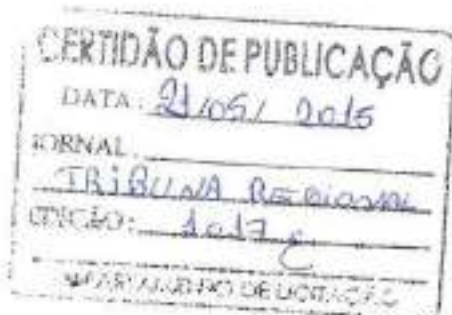 CERTIDÃO DE PUBLICAÇÃO
DATA: 21/05/ 2015
JORNAL
TRIBUNA REGIONAL
EDIÇÃO: 1017
DE LICITAÇÃO